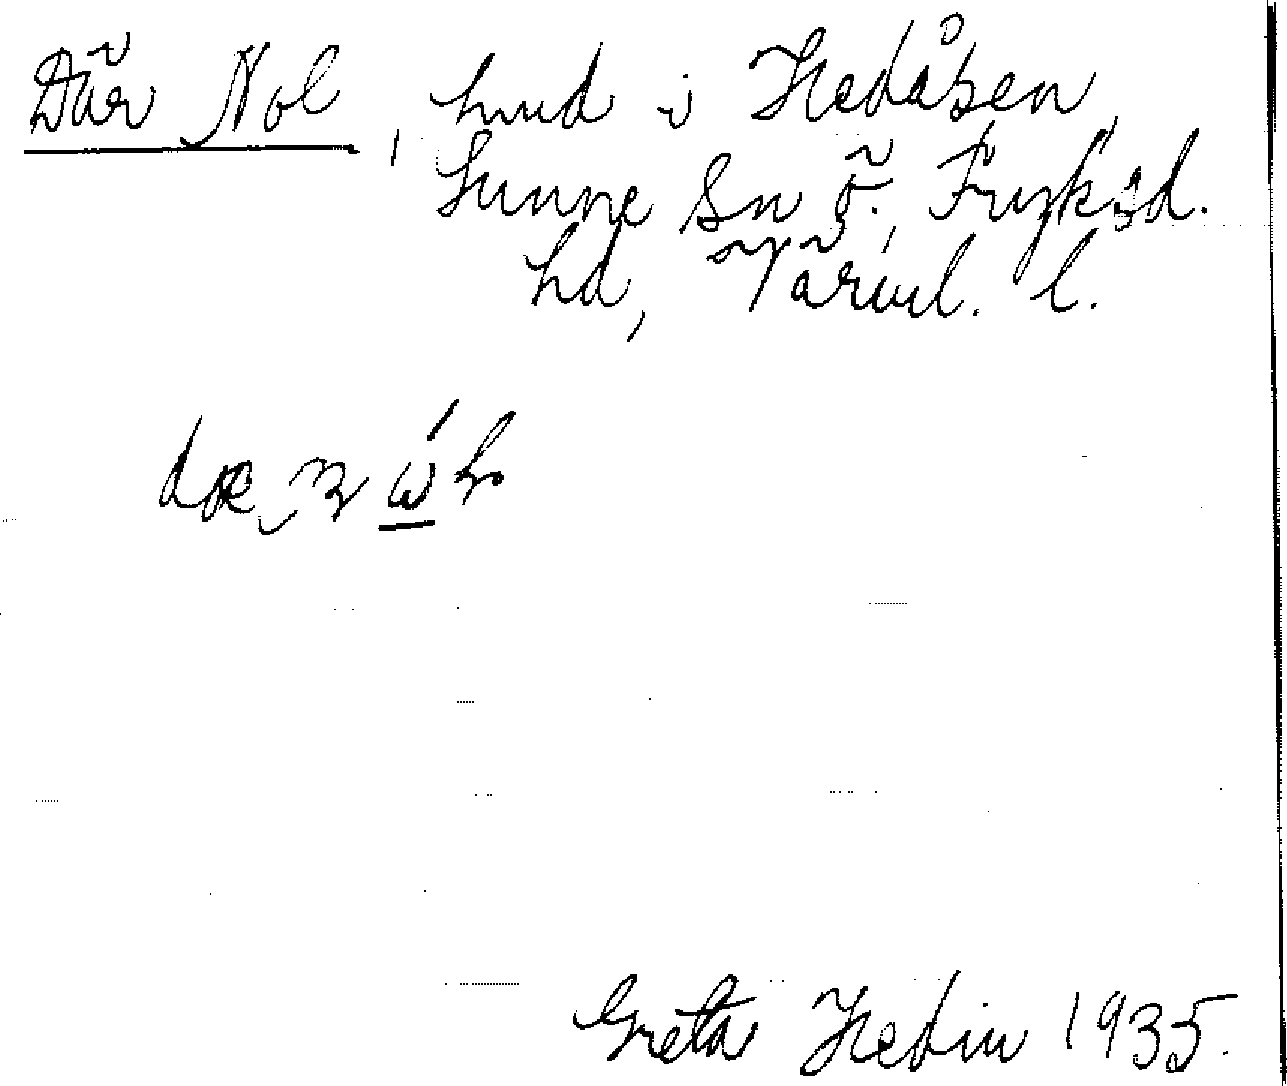 Där Nol, hmd i Hedåsen,
Sunne Sn Ö. Fryksd.
hd, Värml. l.
Greta Hedin 1935.